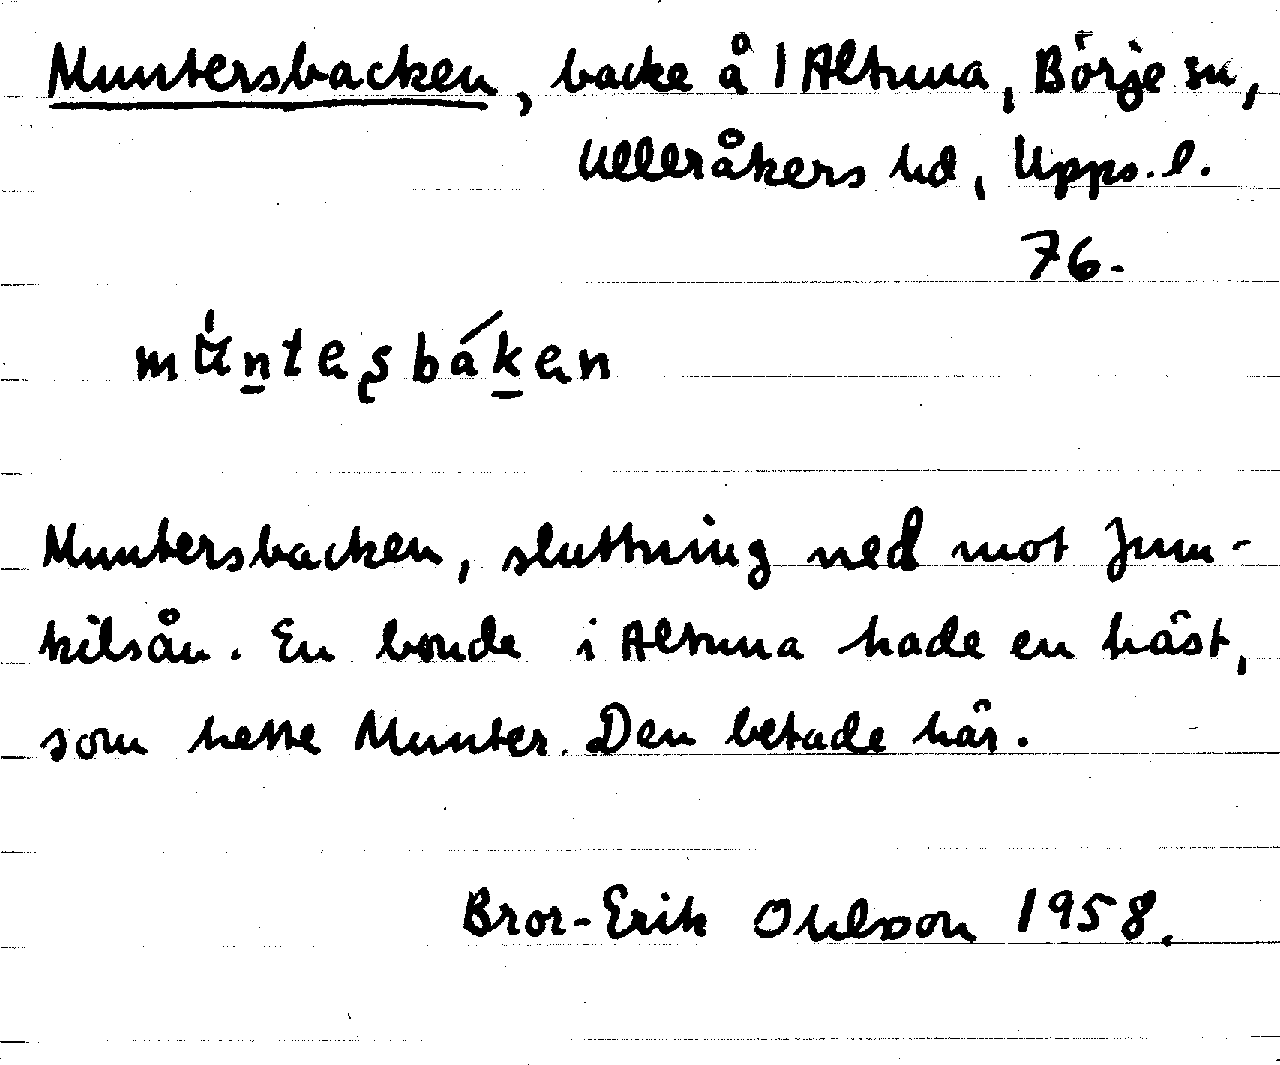 Muntersbacken, backe å 1 Altuna, Börje sn,
Ulleråkers hd, Upps. l.
76.
Muntersbacken, sluttning ned mot Jum-
kilsån. En bonde i Altuna hade en häst,
som hette Munter. Den betade här.
Bror-Erik Ohlson 1958.